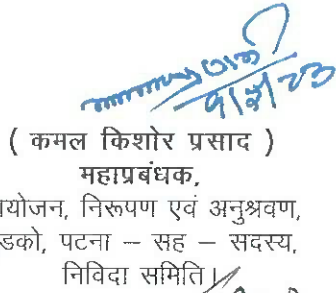 ( कमल किशोर प्रसाद )
महाप्रबंधक,
योजन, निरूपण एवं अनुश्रवण,
डको, पटना – सह – सदस्य,
निविदा समिति।